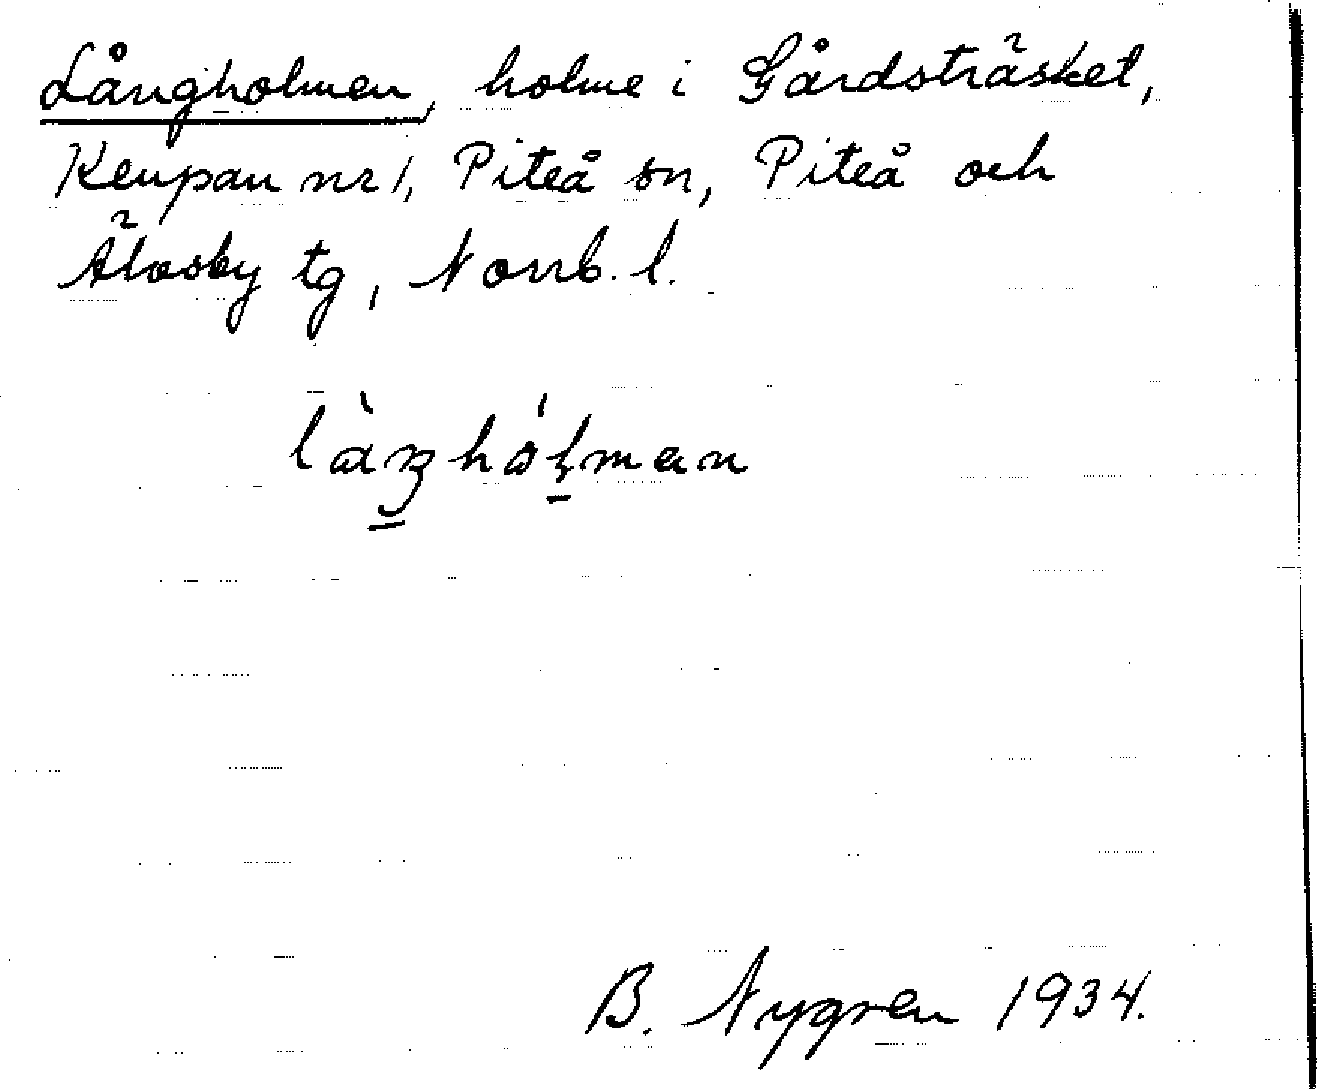 Långholmen, holme i Gårdsträsket,
Keupan nr 1, Piteå sn, Piteå och
Älvsby tg, Norrb. l.
B. Nygren 1934.